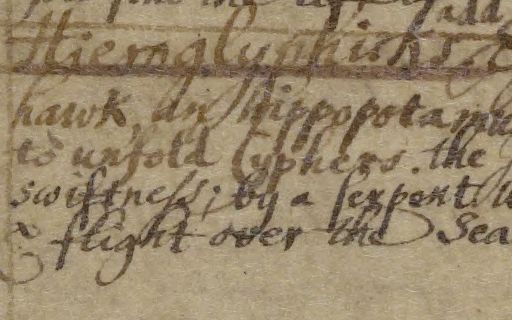 the
add
Hieroglyphicks
hawk, an hippopotamu
to unfold Cyphers. the
swiftness; by a serpent
& flight over the Sea